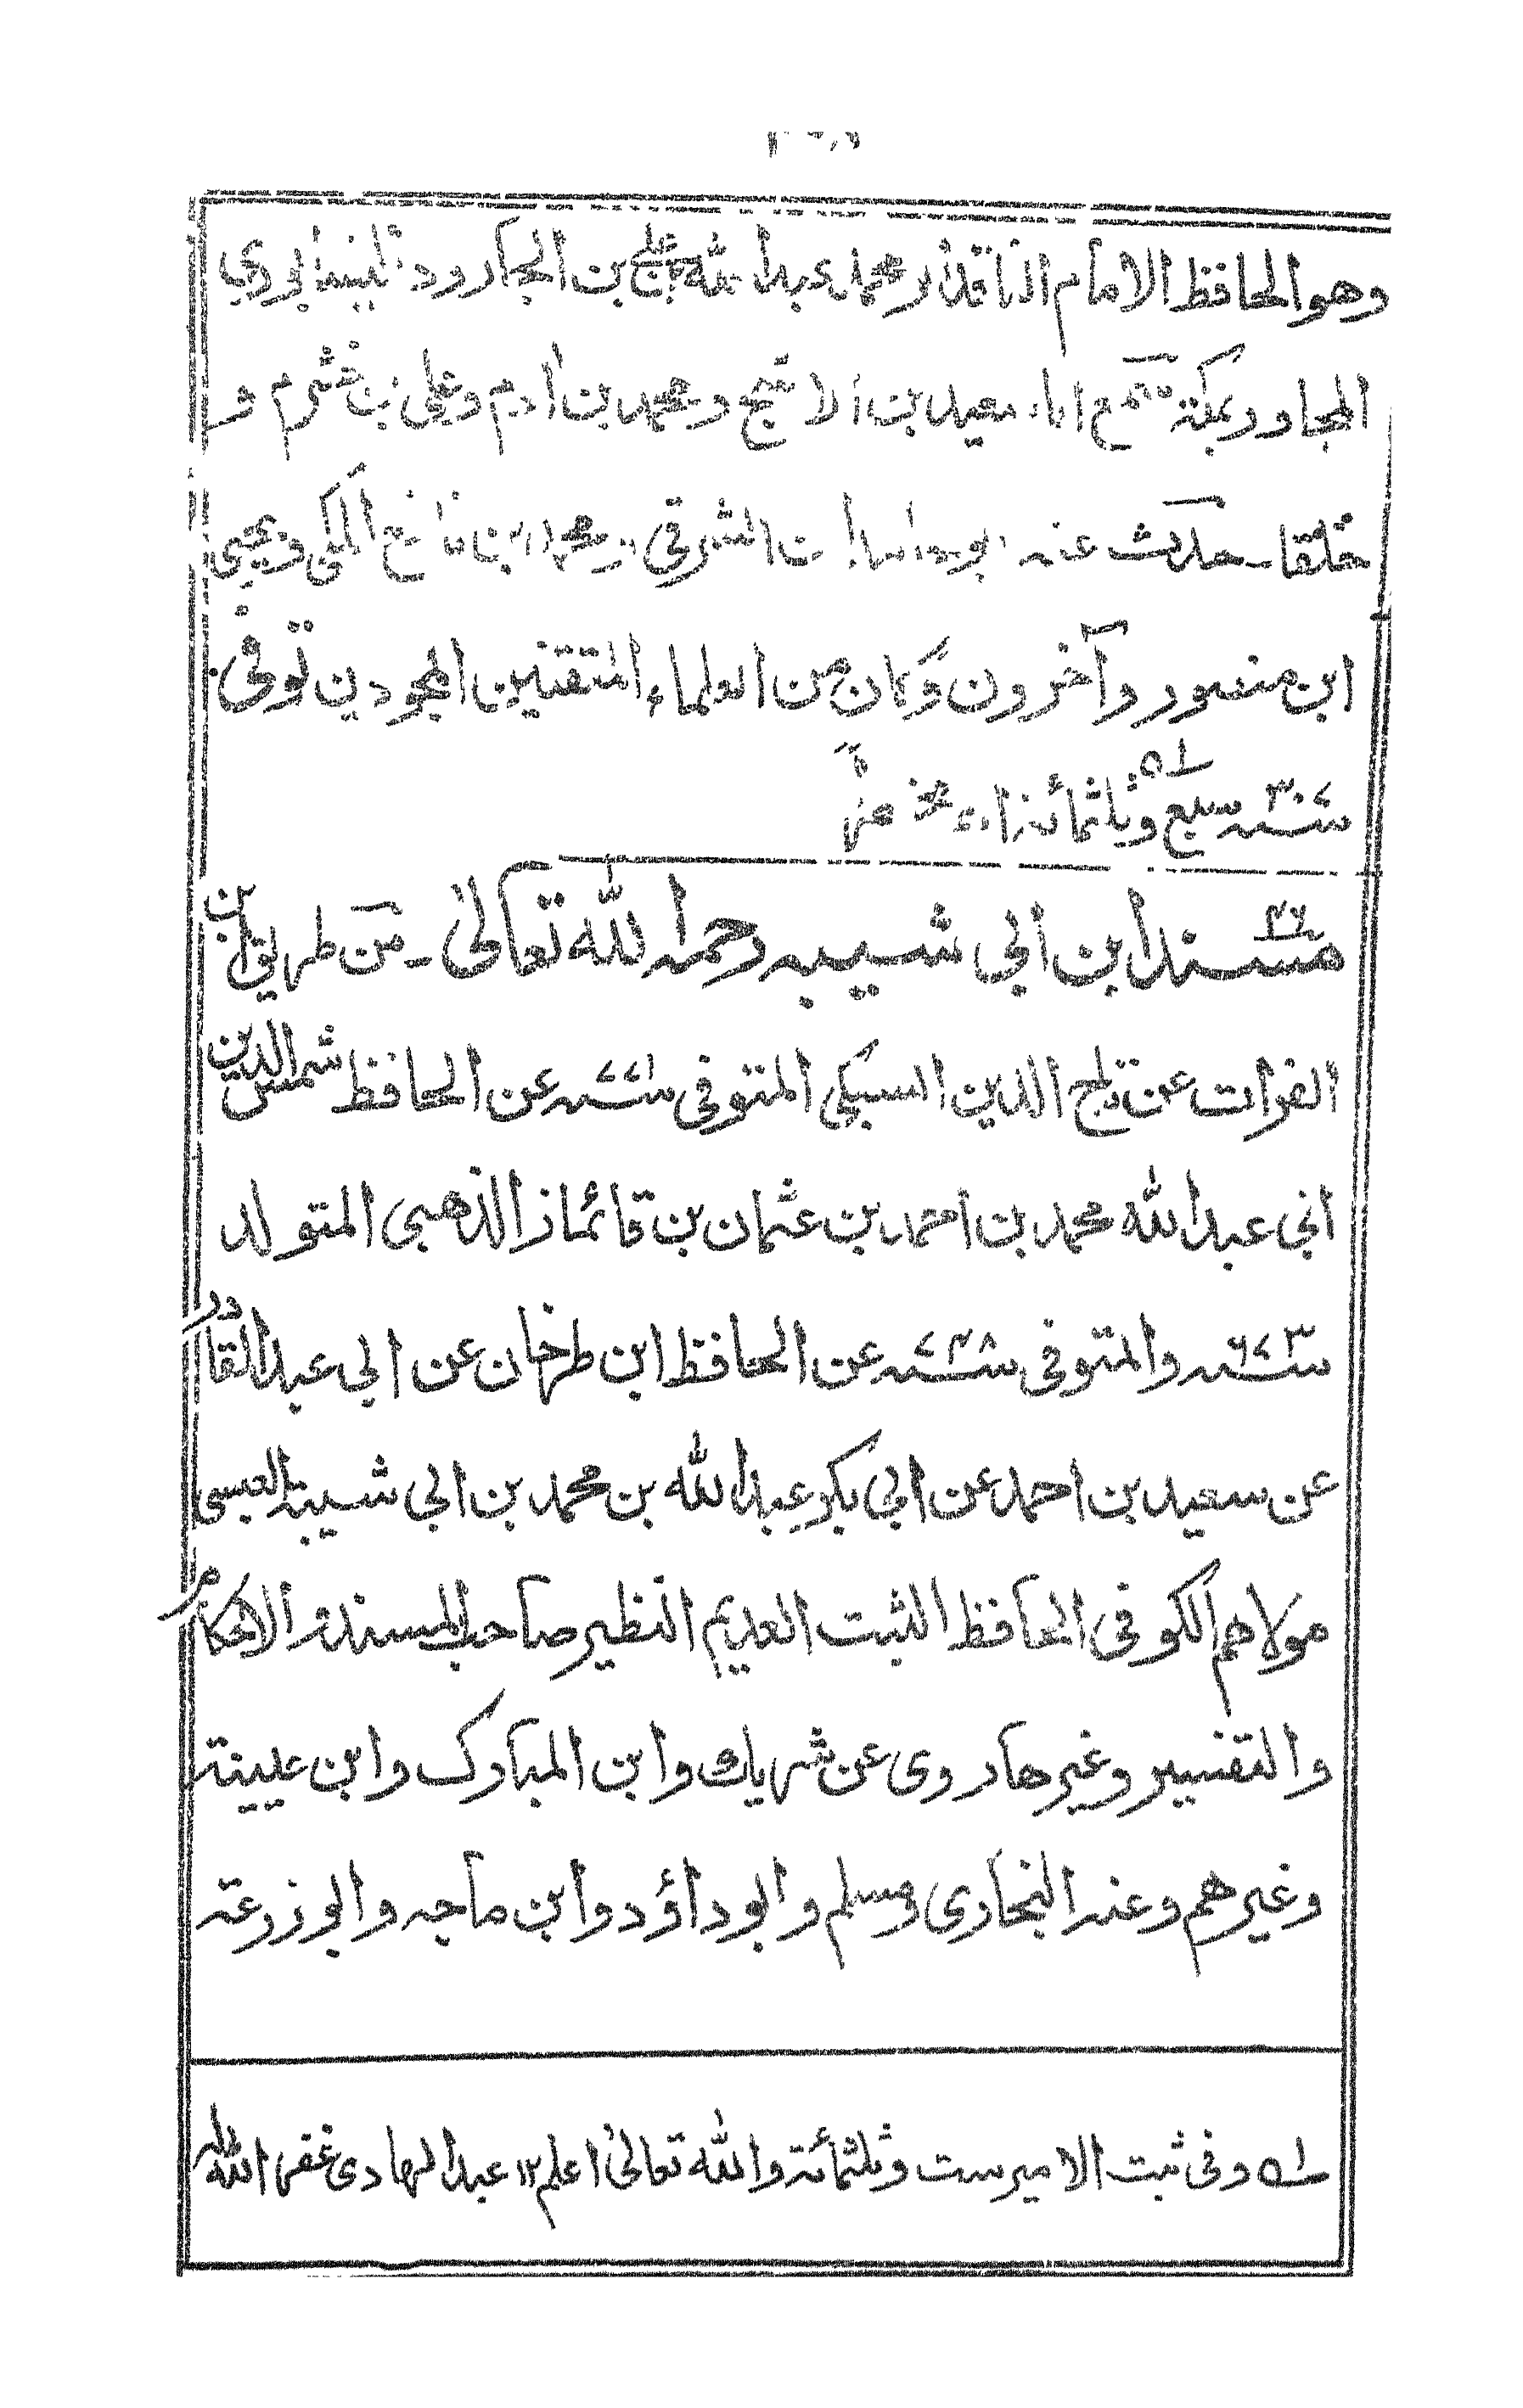 وهو الحافظ الامام الناقد ابو محمد عبد الله بن علي بن الجارود النيسابوري
المجاور بمكة سمع ابا سعيد بن الاشج ومحمد بن ادم وعلي بن خشرم و
خلقا۔ حدث عنه ابو حامد ابن الشرقي و محمد بن نافع المكي ويحيى
ابن منصور وآخرون وكان من العلماء المتقنين المجودين توفى
سنه ٣٠٧ سبع وثلثمائة اه
٣٦ مسند ابن ابي شيبه رحمه الله تعالى ۔ من طريق ابن
الفرات عن تاج الدين السبكي المتوفى سنه ٧٧١ عن الحافظ شمس الدين
ابي عبد الله محمد بن احمد بن عثمان بن قائماز الذهبي المتولد
سنه ٦٧٣ والمتوفى سنه ٧٤٨ عن الحافظ ابن طرخان عن ابي عبد القادر
عن سعيد بن احمد عن ابي بكر عبد الله بن محمد بن ابي شيبة العبسى
مولاهم الكوفى الحافظ الثبت العديم النظير صاحب المسند والاحكام
والتفسير وغيرها روى عن شريك وابن المبارك وابن عيينة
وغيرهم وعنه البخارى ومسلم وابو داؤد وابن ماجه وابو زرعة
لـه وفى ثبت الامير ست وثلثمائة والله تعالىٰ اعلم ١٢ عبد الهادى غفر الله له